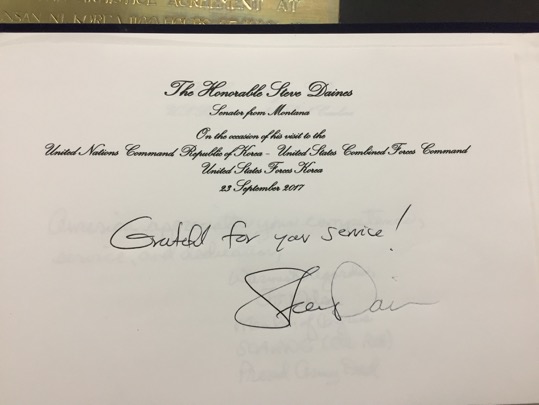 AGREEMENT AT
The Honorable Steve Daines
Senator from Montana
On the occasion of his visit to the
United Nations Command Republic of Korea - United States Combined Forces Command
United States Forces Korea
23 September 2017
Grateful for your service!
Steve Daines